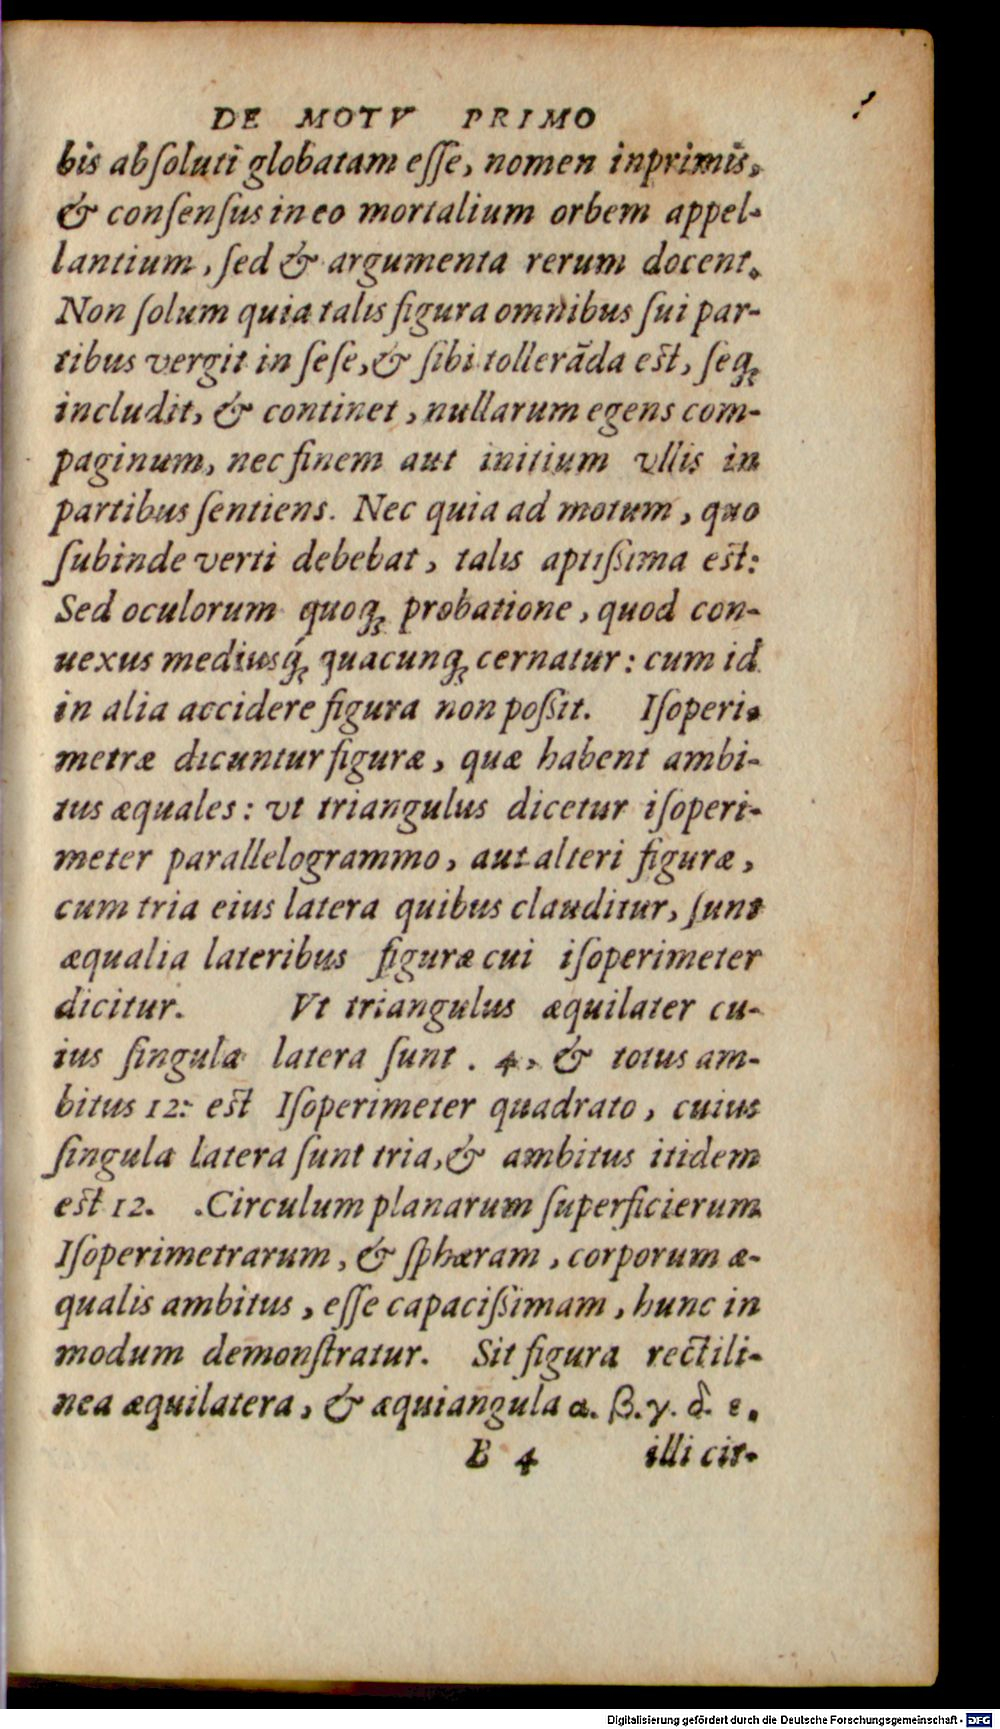 DE MOTV PRIMO
bis abſoluti globatam eſſe, nomen inprimis,
& conſenſus in eo mortalium orbem appel-
lantium, ſed & argumenta rerum docent.
Non ſolum quia talis figura omnibus ſui par-
tibus vergit in ſeſe, & ſibi tollerāda eſt, ſeq́;
includit, & continet, nullarum egens com-
paginum, nec finem aut initium vllis in
partibus ſentiens. Nec quia ad motum, quo
ſubinde verti debebat, talis aptiſsima eſt:
Sed oculorum quoq; probatione, quod con-
uexus mediusq́; quacunq; cernatur: cum id
in alia accidere figura non poſsit. Iſoperi-
metræ dicuntur figuræ, quæ habent ambi-
tus æquales: vt triangulus dicetur iſoperi-
meter parallelogrammo, aut alteri figuræ,
cum tria eius latera quibus clauditur, ſunt
æqualia lateribus figuræ cui iſoperimeter
dicitur. Vt triangulus æquilater cu-
ius ſingula latera ſunt. 4, & totus am-
bitus 12: eſt Iſoperimeter quadrato, cuius
ſingula latera ſunt tria, & ambitus itidem
eſt 12. .Circulum planarum ſuperficierum
Iſoperimetrarum, & ſphæram, corporum æ-
qualis ambitus, eſſe capaciſsimam, hunc in
modum demonſtratur. Sit figura rectili-
nea æquilatera, & æquiangula α. β. γ. δ. ε.
B 4 illi cir-
Digitalisierung gefördert durch die Deutsche Forschungsgemeinschaft - DFG